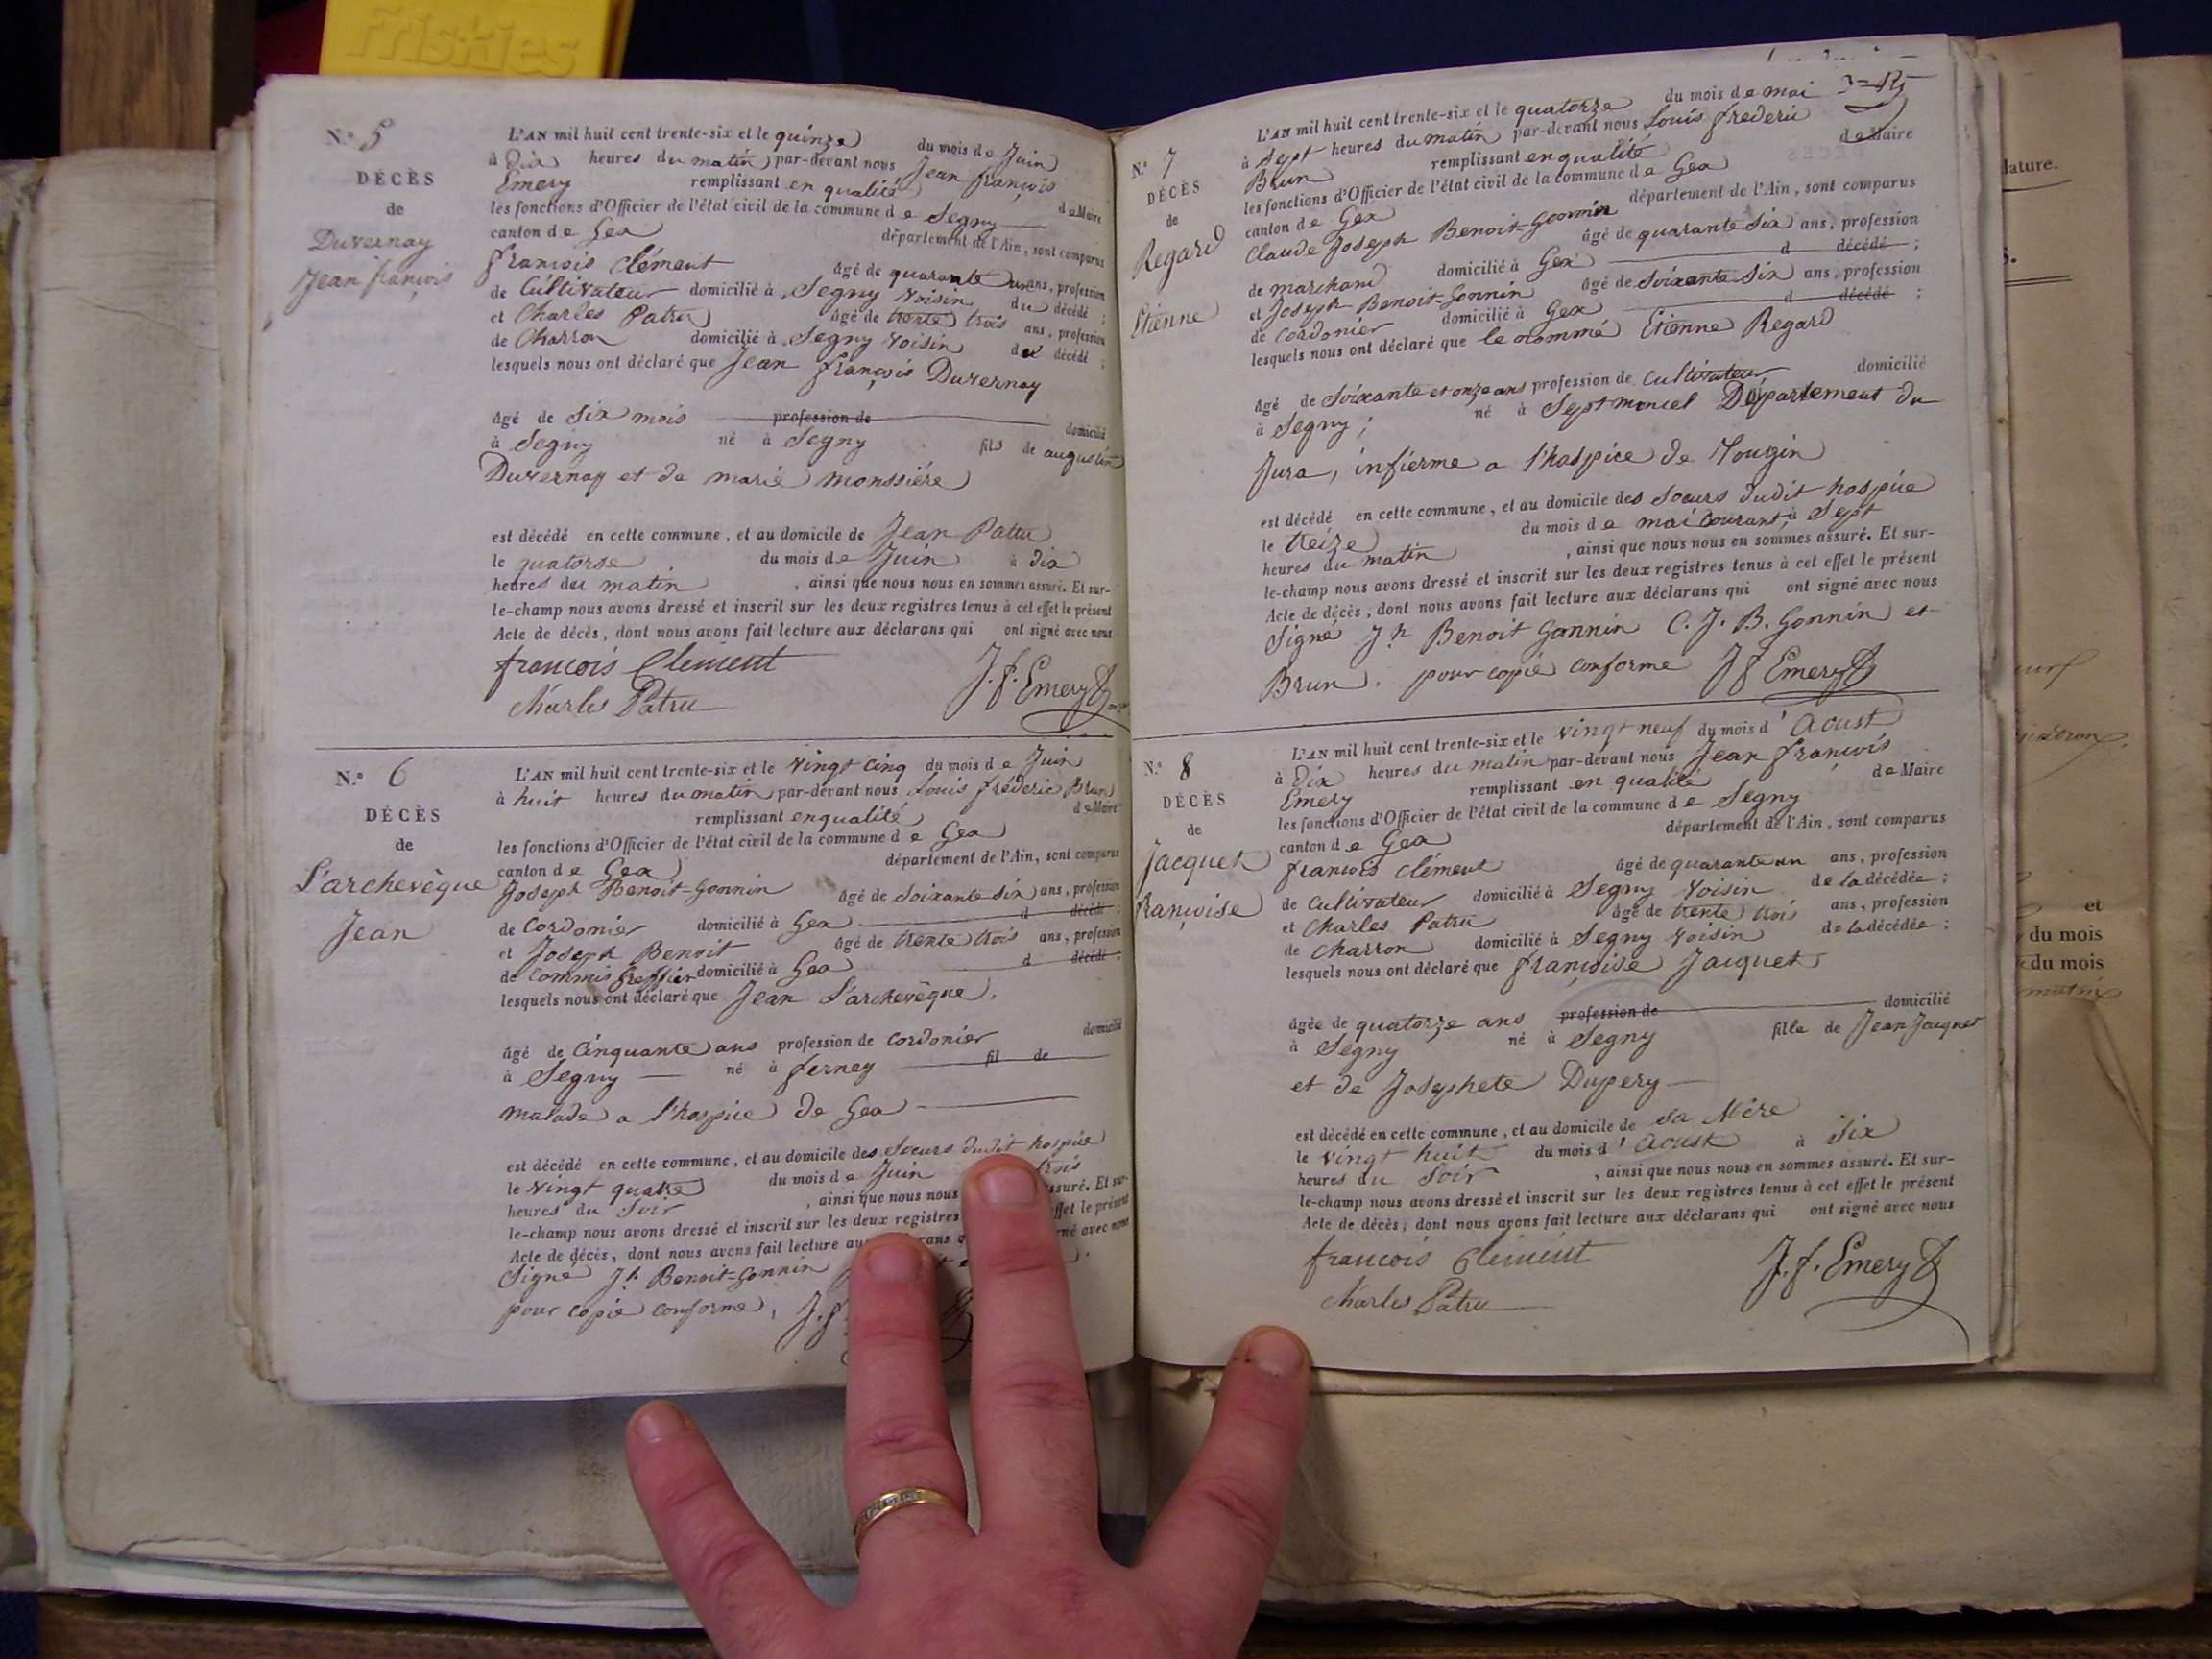 Friskies
N.° 5
DÉCÈS
de
Duvernay
Jean françois
L'AN mil huit cent trente-six et le quinze du mois de Juin
à dix heures du matin par-devant nous Jean françois
Emery remplissant en qualité de Maire
les fonctions d'Officier de l'état civil de la commune de Segny
canton de Gex département de l'Ain, sont comparus
françois Clément âgé de quarante un ans, profession
de Cultivateur domicilié à Segny voisin du décédé ;
et Charles Patru âgé de trente trois ans, profession
de Charron domicilié à Segny voisin du décédé ;
lesquels nous ont déclaré que Jean françois Duvernay
âgé de six mois profession de domicilié
à Segny né à Segny fils de augustin
Duvernay et de marie monssiére
est décédé en cette commune, et au domicile de Jean Patru
le quatorse du mois de Juin à dix
heures du matin , ainsi que nous nous en sommes assuré. Et sur-
le-champ nous avons dressé et inscrit sur les deux registres tenus à cet effet le présent
Acte de décès, dont nous avons fait lecture aux déclarans qui ont signé avec nous
françois Clement
Charles Patru J. f. Emery
N.° 6
DÉCÈS
de
L'archevêque
Jean
L'AN mil huit cent trente-six et le vingt cinq du mois de Juin
à huit heures du matin par-devant nous Louis fréderic Brun
remplissant en qualité de Maire
les fonctions d'Officier de l'état civil de la commune de Gex
canton de Gex département de l'Ain, sont comparus
Joseph Benoit-Gonnin âgé de Soixante Six ans, profession
de Cordonier domicilié à Gex d décédé ;
et Joseph Benoit âgé de trente trois ans, profession
de Commis Greffier domicilié à Gex d décédé ;
lesquels nous ont déclaré que Jean L'archevêque,
âgé de Cinquante ans profession de cordonier domicilié
à Segny né à ferney fil de
malade a l'hospice de Gex
est décédé en cette commune, et au domicile des Soeurs dudit hospice
le vingt quatre du mois de Juin trois
heures du Soir , ainsi que nous nous ssuré. Et sur-
le-champ nous avons dressé et inscrit sur les deux registres ffet le présent
Acte de décès, dont nous avons fait lecture avec nous
Signé Jh Benoit-Gonnin
pour copie conforme, J. f
N.° 7
DÉCÈS
de
Regard
Etienne
L'AN mil huit cent trente-six et le quatorze du mois de mai
à Sept heures du matin par-devant nous Louis frederic
Brun remplissant en qualité de Maire
les fonctions d'Officier de l'état civil de la commune de Gex
canton de Gex département de l'Ain, sont comparus
Claude Joseph Benoit-Gonnin âgé de quarante Six ans, profession
de marchand domicilié à Gex d décédé ;
et Joseph Benoit-Gonnin âgé de Soixante Six ans, profession
de Cordonier domicilié à Gex d décédé ;
lesquels nous ont déclaré que le nommé Etienne Regard
âgé de Soixante et onze ans profession de Cultivateur domicilié
à Segny ; né à Septmoncel Département du
Jura, infierme a l'hospice de Tougin
est décédé en cette commune, et au domicile des Soeurs dudit hospice
le treize du mois de mai courant à Sept
heures du matin , ainsi que nous nous en sommes assuré. Et sur-
le-champ nous avons dressé et inscrit sur les deux registres tenus à cet effet le présent
Acte de décès, dont nous avons fait lecture aux déclarans qui ont signé avec nous
Signé Jh Benoit Gonnin C. J. B. Gonnin et
Brun. pour copie conforme J f Emery
N.° 8
DÉCÈS
de
Jacquet
françoise
L'AN mil huit cent trente-six et le vingt neuf du mois d'Aoust
à dix heures du matin par-devant nous Jean françois
Emery remplissant en qualité de Maire
les fonctions d'Officier de l'état civil de la commune de Segny
canton de Gex département de l'Ain, sont comparus
françois Clément âgé de quarante un ans, profession
de Cultivateur domicilié à Segny voisin de la décédée ;
et Charles Patru âgé de trente trois ans, profession
de Charron domicilié à Segny voisin de la décédée ;
lesquels nous ont déclaré que françoise Jacquet
âgée de quatorze ans profession de domicilié
à Segny né à Segny fille de Jean Jacquet
et de Josephete Dupery
est décédé en cette commune, et au domicile de sa Mère
le vingt huit du mois d'Aoust à Six
heures du Soir , ainsi que nous nous en sommes assuré. Et sur-
le-champ nous avons dressé et inscrit sur les deux registres tenus à cet effet le présent
Acte de décès; dont nous avons fait lecture aux déclarans qui ont signé avec nous
françois Clement
Charles Patru J. f. Emery
lature.
et
du mois
du mois